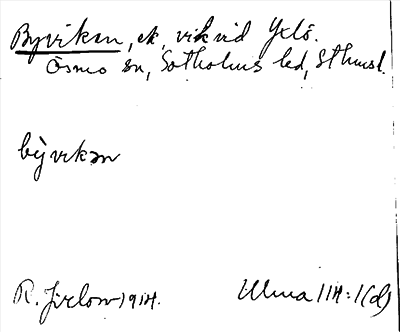 Byviken, ek, vik vid Yxlö.
Ösmo sn, Sotholms hd, Sthmsl.
bỳvikən
R. Jirlow 1914.
Ulma 114:1(d)